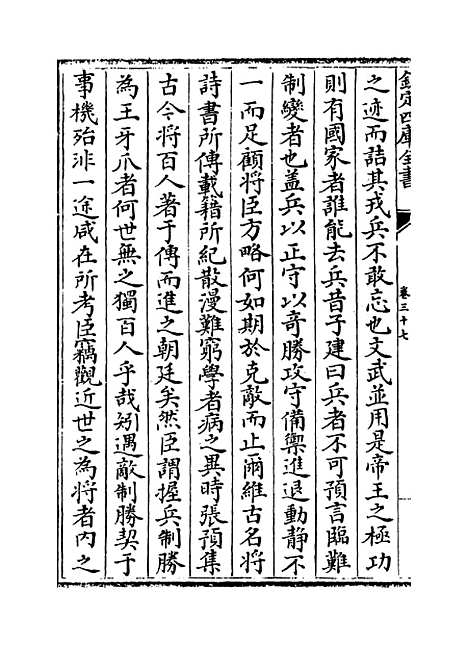 欽定四庫全書
卷三十七
之迹而詰其戎兵不敢忘也文武並用是帝王之極功
則有國家者誰能去兵昔子建曰兵者不可預言臨難
制變者也盖兵以正守以奇勝攻守備禦進退動静不
一而足顧將臣方略何如期於克敵而止爾維古名將
詩書所傳載籍所紀散漫難窮學者病之異時張預集
古今將百人著于傳而進之朝廷矣然臣謂握兵制勝
為王牙爪者何世無之獨百人乎哉矧遇敵制勝契于
事機殆非一途咸在所考臣竊觀近世之為將者内之